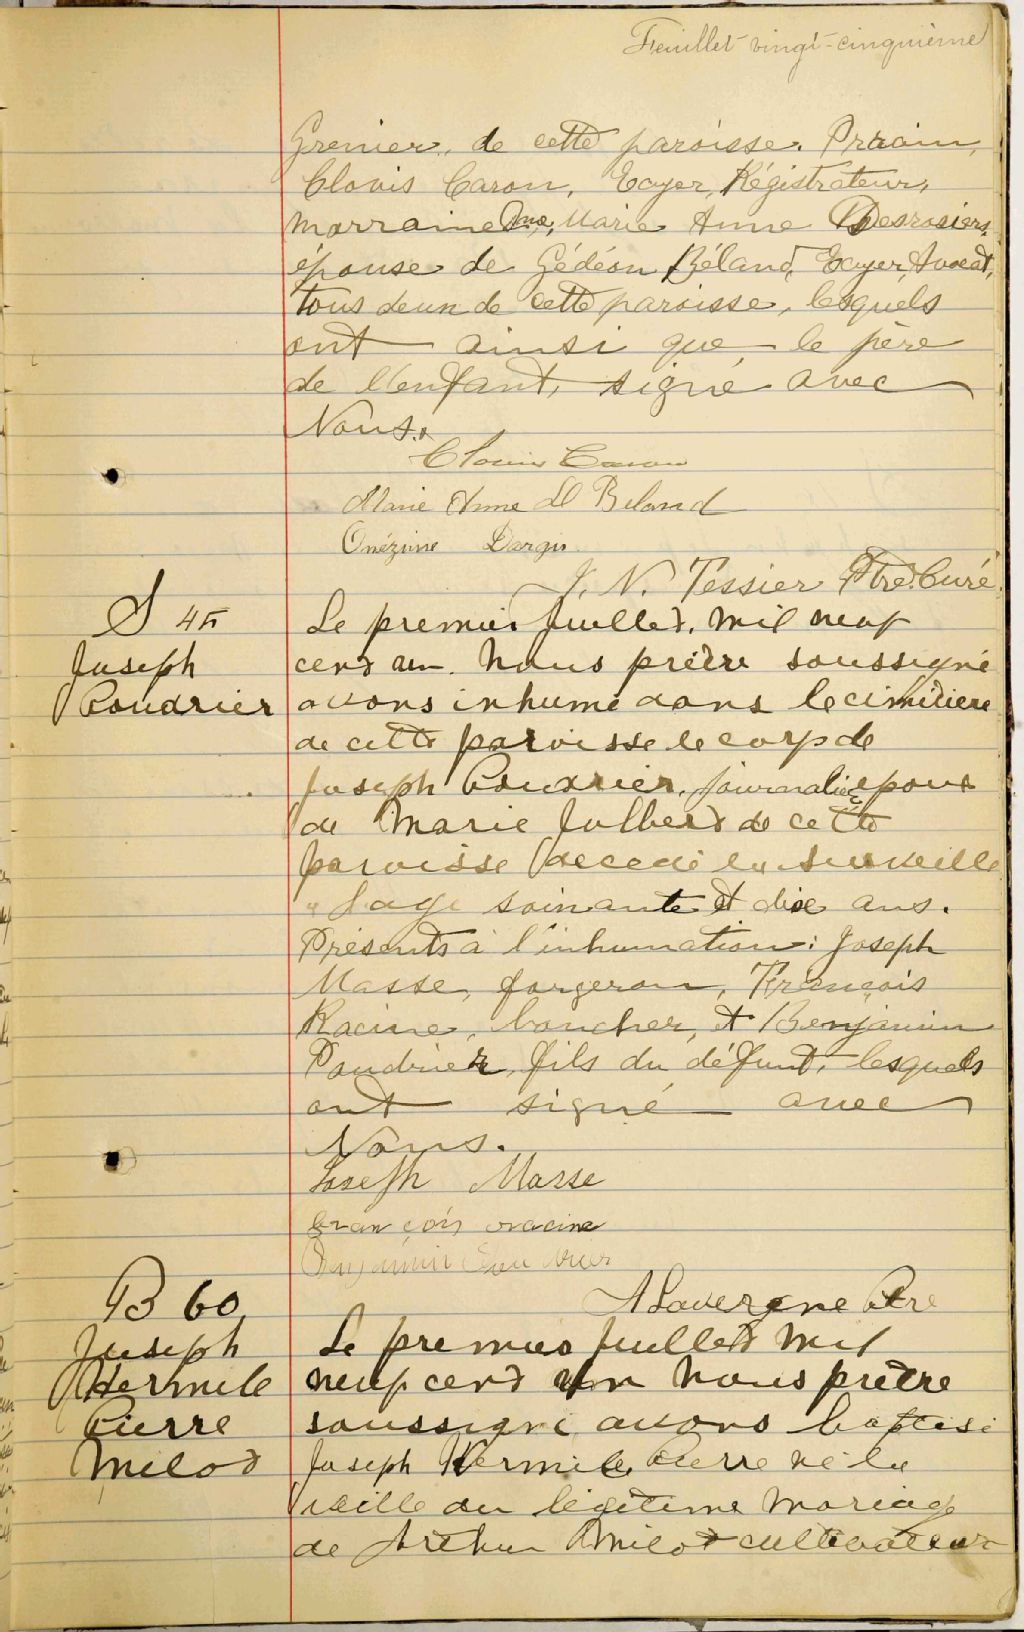 Feuillet vingt-cinquième
Grenier, de cette paroisse. Parrain,
Clovis Caron, Ecuyer, Régistrateur,
marraine Dme. Marie Anne Desrosiers,
épouse de Gédéon Béland, Ecuyer, Avocat,
tous deux de cette paroisse, lesquels
ont ainsi que le père
de l'enfant, signé avec
Nous.
Clovis Caron
Marie Anne D Beland
Onézime Dargis
J. N. Tessier Ptre. Curé.
S 45
Joseph
Poudrier
Le premier Juillet, mil neuf
cent un Nous prêtre soussigné
avons inhumé dans le cimitiere
de cette paroisse le corp de
Joseph Poudrier, journalier époux
de Marie Julbert de cette
paroisse decedé la surveille
a l'age soixante et dix ans.
Présents à l'inhumation: Joseph
Masse, forgeron, François
Racine, boucher, et Benjamin
Poudrier, fils du défunt, lesquels
ont signé avec
Nous.
Joseph Masse
François racine
Benjamin Poudrier
A Lavergne Ptre
B 60
Joseph
Hermile
Pierre
Milot
Le premier Juillet mil
neuf cent un Nous prêtre
soussigné avons baptisé
Joseph Hermile Pierre né la
veille du légitime mariage
de Arthur Milot cultivateur